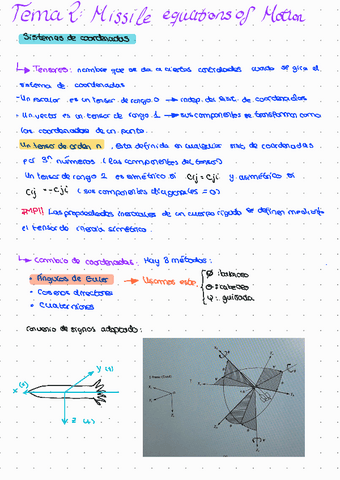 Tema 2: Missile equations of Motion
Sistemas de coordenadas
↳ Tensores: nombre que se da a ciertas cantidades cuando se gira el
sistema de coordenadas
- Un escalar es un tensor de rango 0 → indep. del sist. de coordenadas
- Un vector es un tensor de rango 1 → sus componentes se transforman como
las coordenadas de un punto.
Un tensor de orden n, esta definido en cualquier sist. de coordenadas
por 3ⁿ números (las componentes del tensor)
Un tensor de rango 2 es simétrico si Cij = Cji y asimétrico si
Cij = -Cji (sus componentes diagonales = 0)
¡IMP!! Las propiedades inerciales de un cuerpo rígido se definen mediante
el tensor de inercia simétrico.
↳ Cambio de coordenadas: Hay 3 métodos:
• Ángulos de Euler → Usamos este
• Cosenos directores
• Cuaterniones
Ø: balanceo
θ: cabeceo
Ψ: guiñada
Convenio de signos adoptado:
Y (2)
X (1)
Z (3)